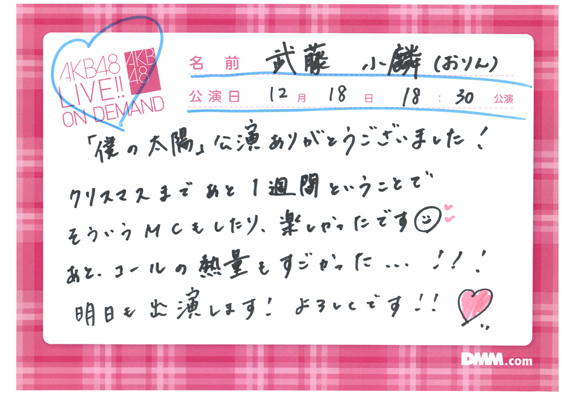 AKB48
LIVE!!
ON DEMAND
AKB
48
名前 武藤 小麟(おりん)
公演日 12月 18日 18:30 公演
「僕の太陽」公演ありがとうございました!
クリスマスまであと1週間ということで
そういうMCもしたり、楽しかったです
あと、コールの熱量もすごかった...!!!
明日も出演します! よろしくです!!
DMM.com